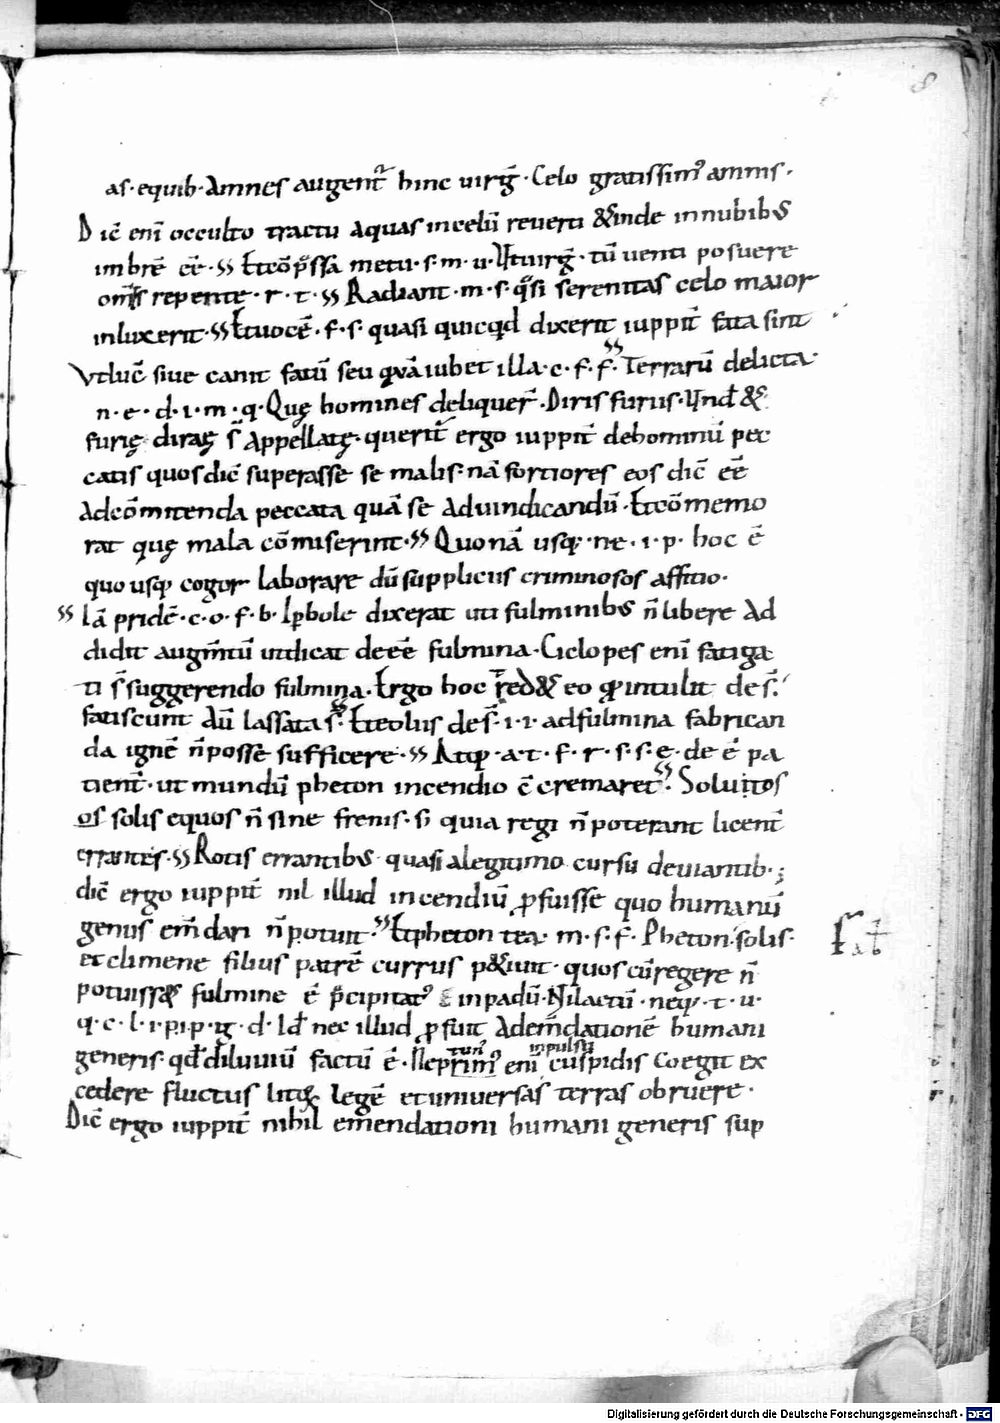 8
as· equib· Amnes augent᷑ hinc uirḡ· Celo gratissimꝰ amnis·
Dic̄ eni᷑ occulto tractu aquas incelū reuerti &inde innubibꝰ
imbrē eē· Etcōp̄ssa metu· s· m· u· Ut uirḡ· tū uenti posuere
om̄s repente· r· t· Radiant· m· s· q̄si serenitas celo maior
inluxerit· Et uocē· f· s· quasi quicq̄d dixerit iuppit̄ fata sint
Vt luc̄ siue canit fatū seu quā iubet illa· c· f· f· Terrarū delicta
n· e· d· i· m· q· Quę homines deliquer̄· Diris furiis· Und̄ &
furię· dirae s̄ Appellatę· querit᷑ ergo iuppit̄ dehominū pec
catis quos dic̄ superasse se malis· nā fortiores eos dic̄ eē
Adcōmittenda peccata quā se Aduindicandū· Etcōmemo
rat quę mala cōmiserint· Quo nā usq;· ne· i· p· hoc ē
quo usq; cogor laborare dū suppliciis criminosos afficio·
Iā pridē· c· o· f· b· Iꝑbole dixerat uti fulminibꝰ n̄ libere Ad
didit augm̄tū ut dicat deeē fulmina· Ciclopes eni᷑ fatiga
ti s̄ suggerendo fulmina· Ergo hoc red& eo ꝙ intulit des̄·
fatiscunt dū lassata s̄· Eteolus des̄· i· i· ad fulmina fabrican
da ignē n̄ posse sufficere· Atq;· a· t· f· r· s· s· e· de ē pa
tient̄· ut mundū pheton incendio c̄cremaret· Soluitos
os solis equos n̄ sine frenis· s; quia regi n̄ poterant licent̄
errantes· Rotis errantibꝰ· quasi alegitimo cursu deuiantib·;
dic̄ ergo iuppit̄ nil illud incendiū ꝓfuisse quo humanū
genus em̄dari n̄ potuit· Et pheton tea· m· s· f· Pheton· solis·
et climene filius patrē currus p&iuit· quos cū regere n̄
potuiss& fulmine ē p̄cipitatꝰ inpadū· Nil actū· neq;· t· u·
q· c· l· i· p· i· p· ig· d· Id̄ nec illud ꝓfuit Adem̄dationē humani
generis· qd̄ diluuiū factū ē· Neptunꝰ eni᷑ inpulsu cuspidis coegit ex
cedere fluctus litoꝝ legē et uniuersas terras obruere·
Dic̄ ergo iuppit̄ nihil emendationi humani generis sup
Digitalisierung gefördert durch die Deutsche Forschungsgemeinschaft - DFG